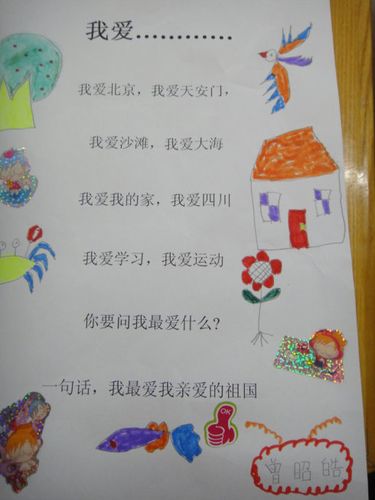 我爱…………
我爱北京，我爱天安门，
我爱沙滩，我爱大海
我爱我的家，我爱四川
我爱学习，我爱运动
你要问我最爱什么?
一句话，我最爱我亲爱的祖国
OK
曾昭皓